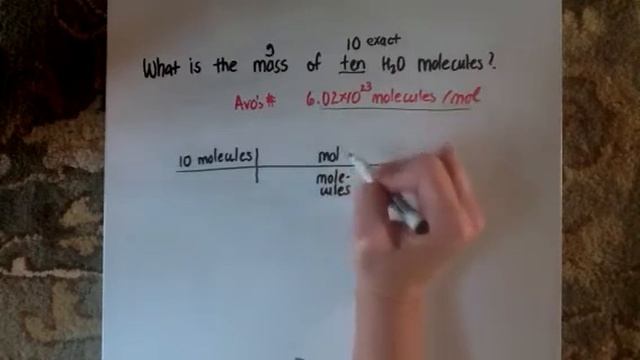 g
10 exact
What is the mass of ten H₂O molecules?
Avo's # 6.02x10²³ molecules / mol
10 molecules mol
mole-
cules